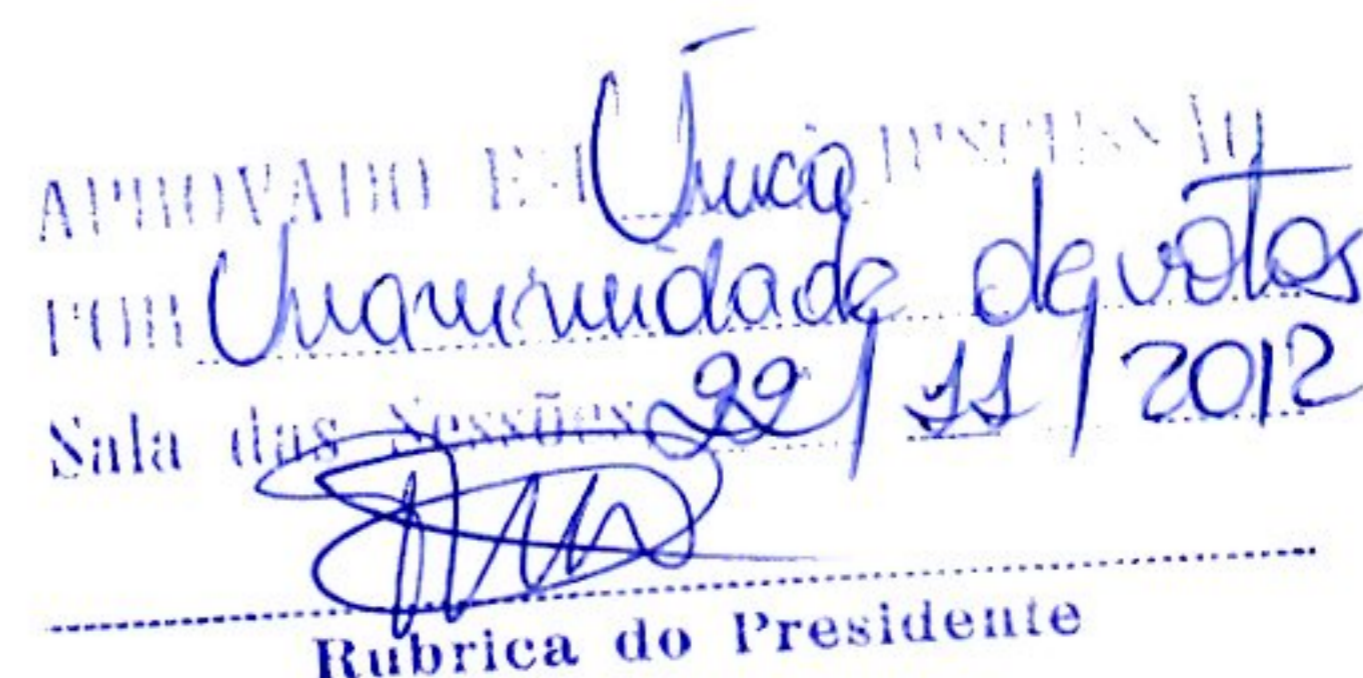 APROVADO EM Única DISCUSSÃO
POR Unanimidade de votos
Sala das Sessões, 22/11/2012
Rubrica do Presidente